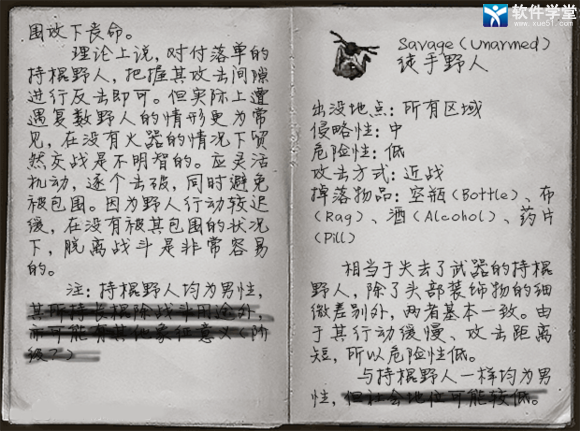 围攻下丧命。
理论上说，对付落单的
持棍野人，把握其攻击间隙
进行反击即可。但实际上遭
遇复数野人的情形更为常
见，在没有火器的情况下贸
然交战是不明智的。应灵活
机动，逐个击破，同时避免
被包围。因为野人行动较迟
缓，在没有被其包围的状况
下，脱离战斗是非常容易
的。
注：持棍野人均为男性，
其所持长棍除战斗用途外，
亦可能有其他象征意义（阶
级？）
软件学堂
www.xue51.com
Savage（Unarmed）
徒手野人
出没地点：所有区域
侵略性：中
危险性：低
攻击方式：近战
掉落物品：空瓶（Bottle）、布
（Rag）、酒（Alcohol）、药片
（Pill）
相当于失去了武器的持棍
野人，除了头部装饰物的细
微差别外，两者基本一致。由
于其行动缓慢、攻击距离
短，所以危险性低。
与持棍野人一样均为男
性，但社会地位可能较低。